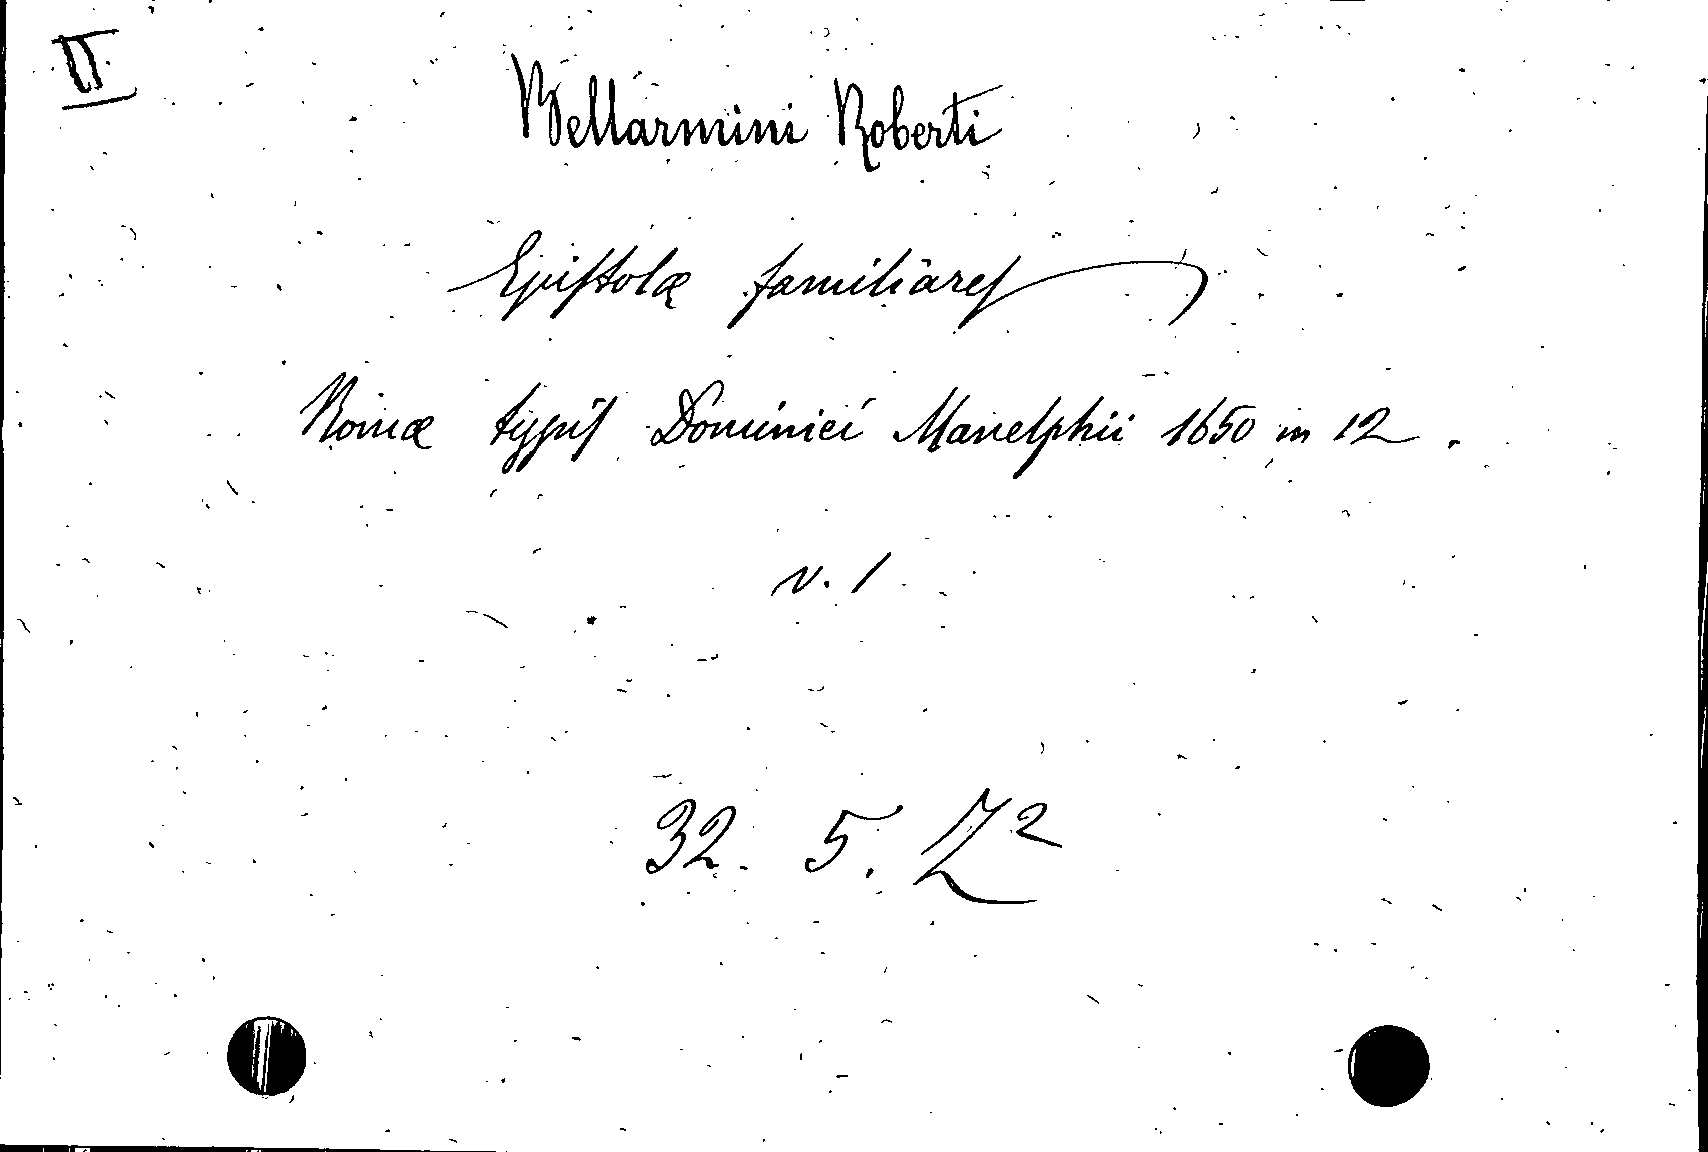 II
Bellarmini Roberti
Epistolæ familiares
Romæ typis Dominici Manelphii 1650 in 12.
v. 1
32. 5. Z²